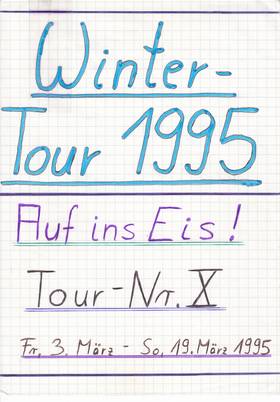 Winter-
Tour 1995
Auf ins Eis!
Tour-Nr. X
Fr, 3. März - So, 19. März 1995